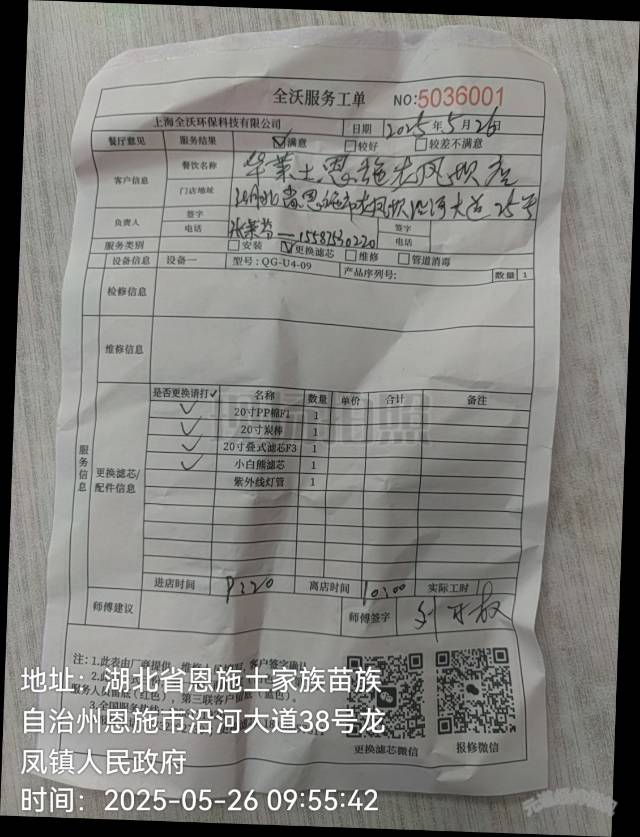 全沃服务工单 NO:5036001
上海全沃环保科技有限公司 日期 2025年5月26日
餐厅意见 服务结果 ☑满意 □较好 □较差不满意
客户信息 餐饮名称 华莱士恩施龙凤坝店
门店地址 湖北省恩施市龙凤坝沿河大道25号
负责人 签字 签字
电话 15587530220 电话
服务类别 □安装 ☑更换滤芯 □维修 □管道消毒
设备信息 设备一 型号:QG-U4-09 产品序列号: 数量 1
检修信息
维修信息
服务信息
更换滤芯/配件信息
是否更换请打✓ 名称 数量 单价 合计 备注
✓ 20寸PP棉F1 1
✓ 20寸炭棒 1
✓ 20寸叠式滤芯F3 1
✓ 小白熊滤芯 1
紫外线灯管 1
进店时间 离店时间 实际工时
师傅建议 师傅签字
注:1.此表由厂商提供,维修人员填写,客户签字确认
更换滤芯微信 报修微信
地址:湖北省恩施土家族苗族
自治州恩施市沿河大道38号龙
凤镇人民政府
时间:2025-05-26 09:55:42